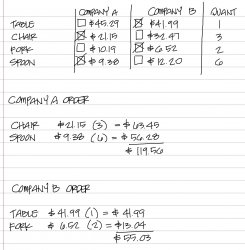 COMPANY A COMPANY B QUANT
TABLE $45.29 $41.99 1
CHAIR $21.15 $32.47 3
FORK $10.19 $6.52 2
SPOON $9.38 $12.20 6
COMPANY A ORDER
CHAIR $21.15 (3) = $63.45
SPOON $9.38 (6) = $56.28
$119.56
COMPANY B ORDER
TABLE $41.99 (1) = $41.99
FORK $6.52 (2) = $13.04
$55.03